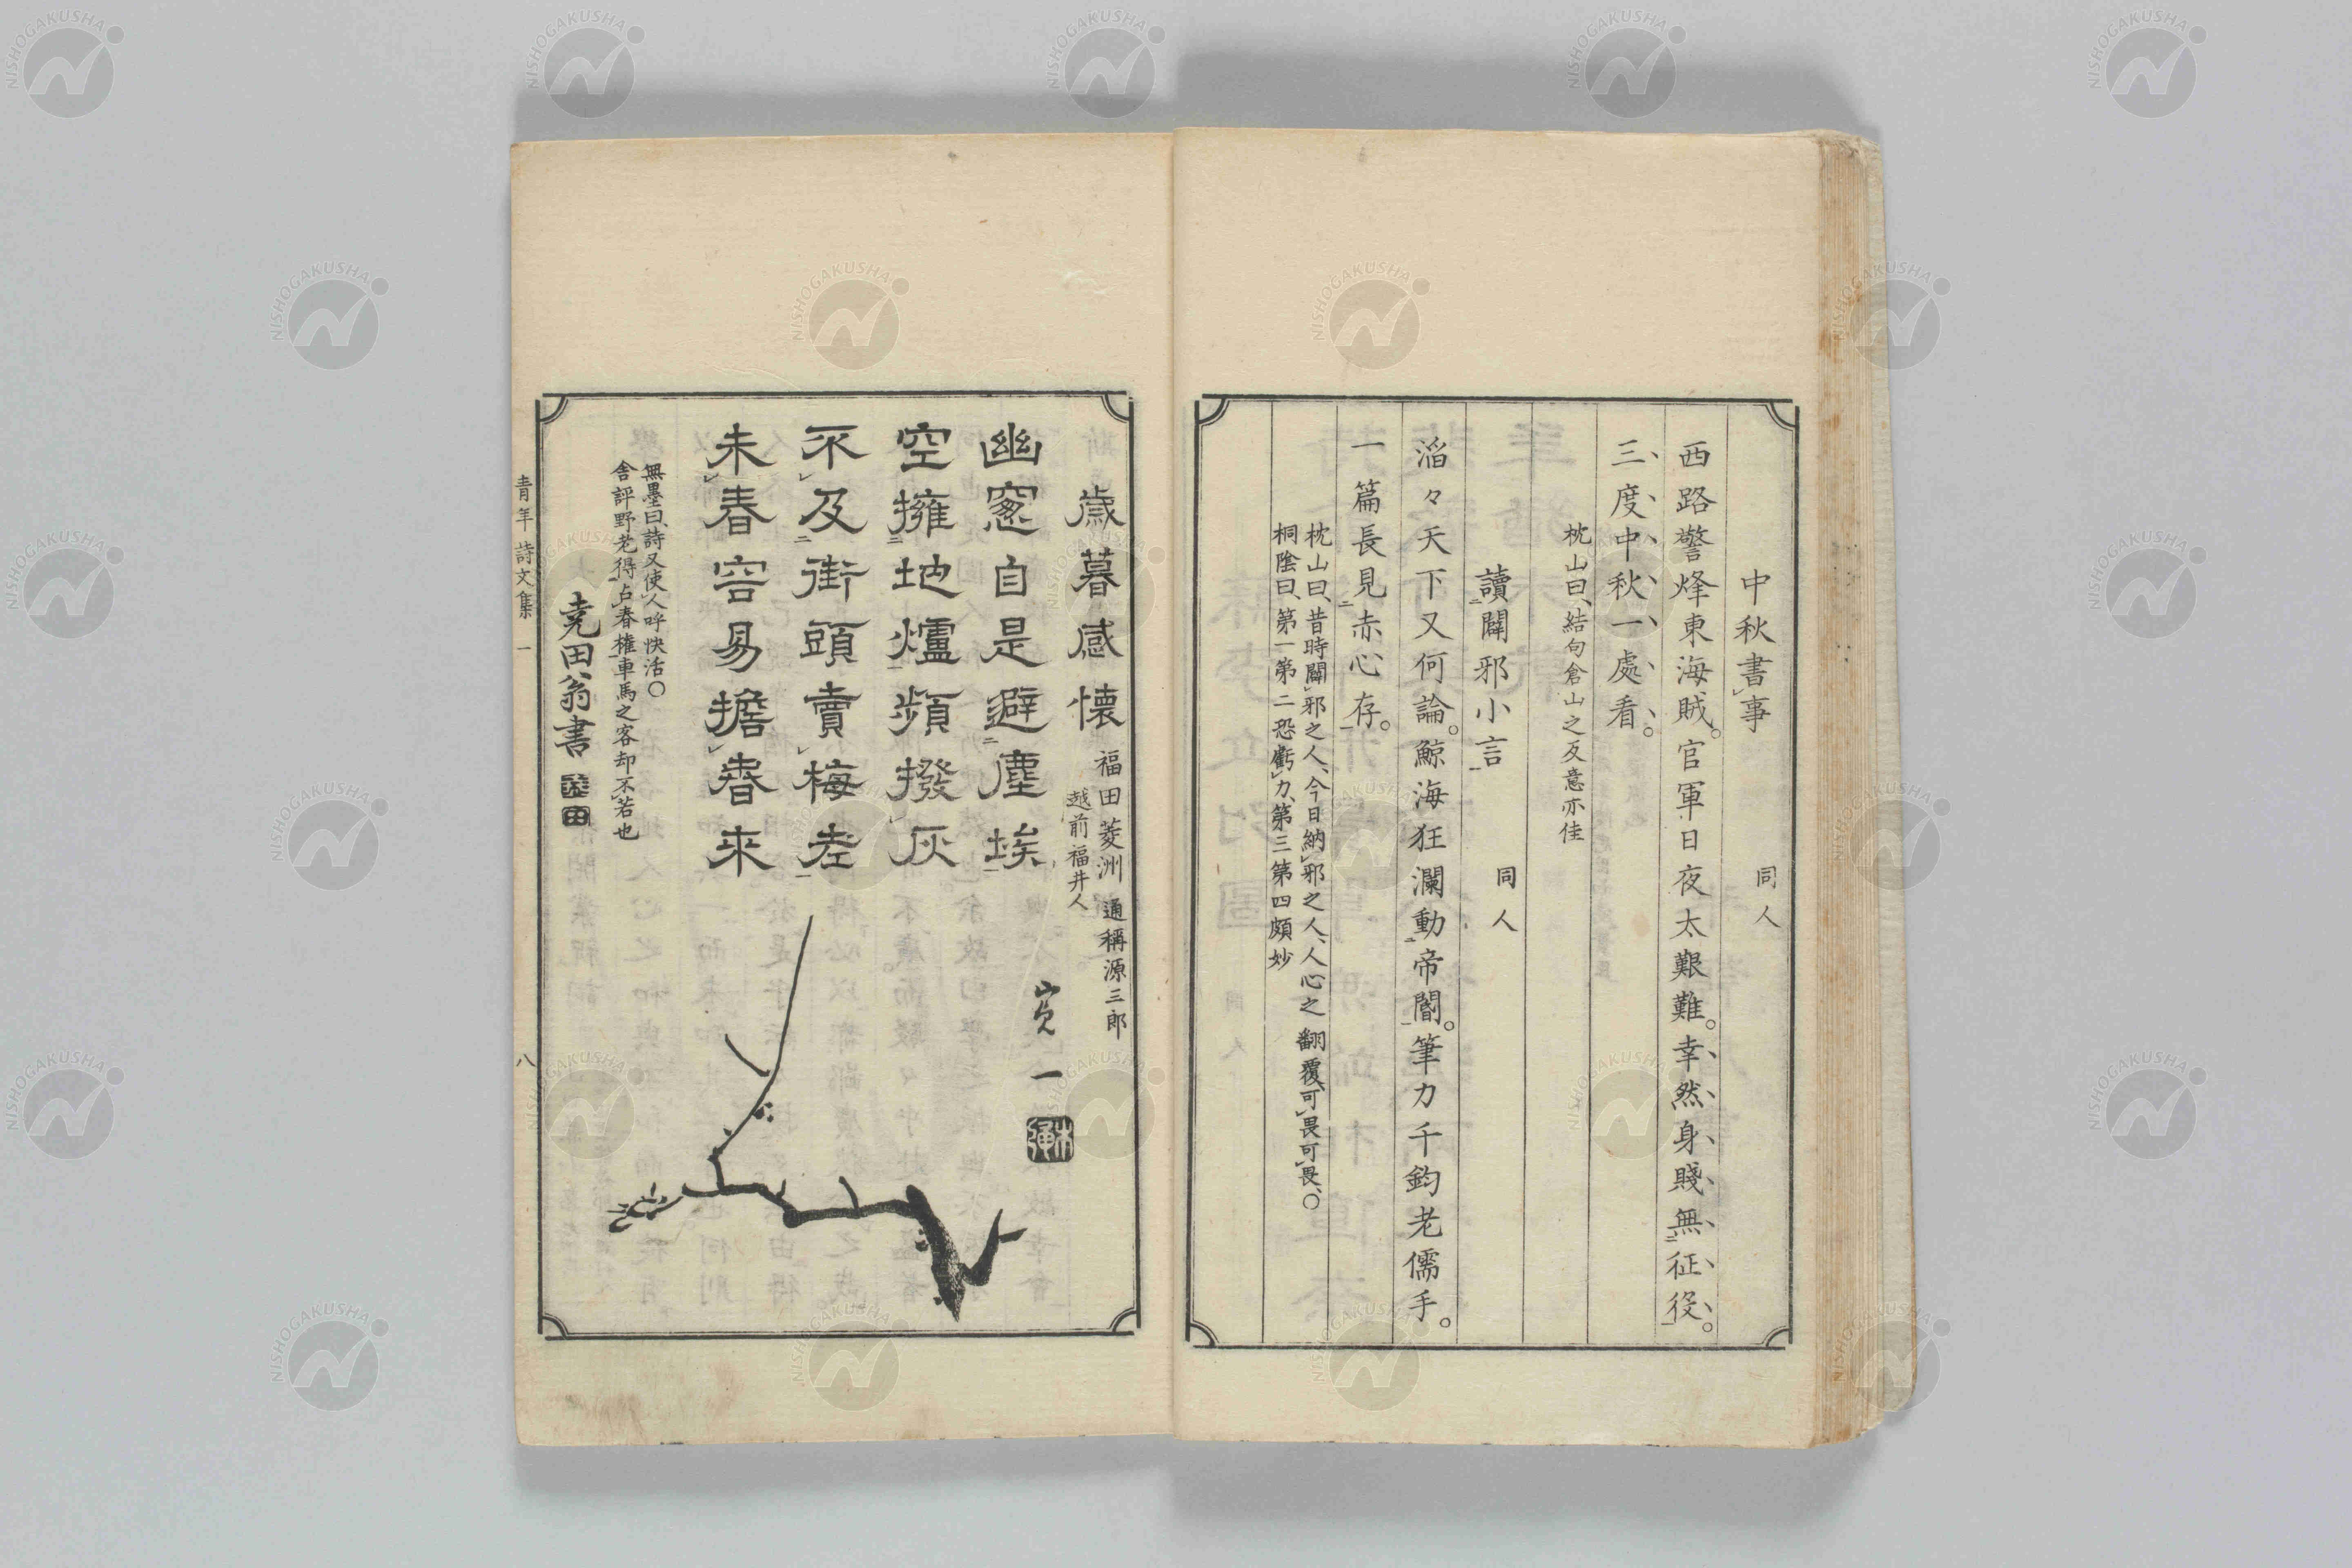 中秋書事 同人
西路警烽東海賊。官軍日夜太艱難。幸然身賤無二征役一。
三度中秋一處看。
枕山曰、結句倉山之反意亦佳
讀二闢邪小言一 同人
滔々天下又何論。鯨海狂瀾動二帝閽一。筆力千鈞老儒手。
一篇長見二赤心存一。
枕山曰、昔時闢レ邪之人、今日納レ邪之人、人心之翻覆、可レ畏可レ畏、○
桐陰曰、第一第二恐虧レ力、第三第四頗妙
歲暮感懷 福田菱洲 通稱源三郎
越前福井人
幽窓自是避二塵埃一
空擁二地爐一頻撥レ灰
不レ及二街頭賣レ梅老一
未レ春容易擔レ春來
無墨曰、詩又使二人呼快活○
舍評野老得レ占春権車馬之客却不レ若也
堯田翁書
青年詩文集 一 八
NISHOGAKUSHA